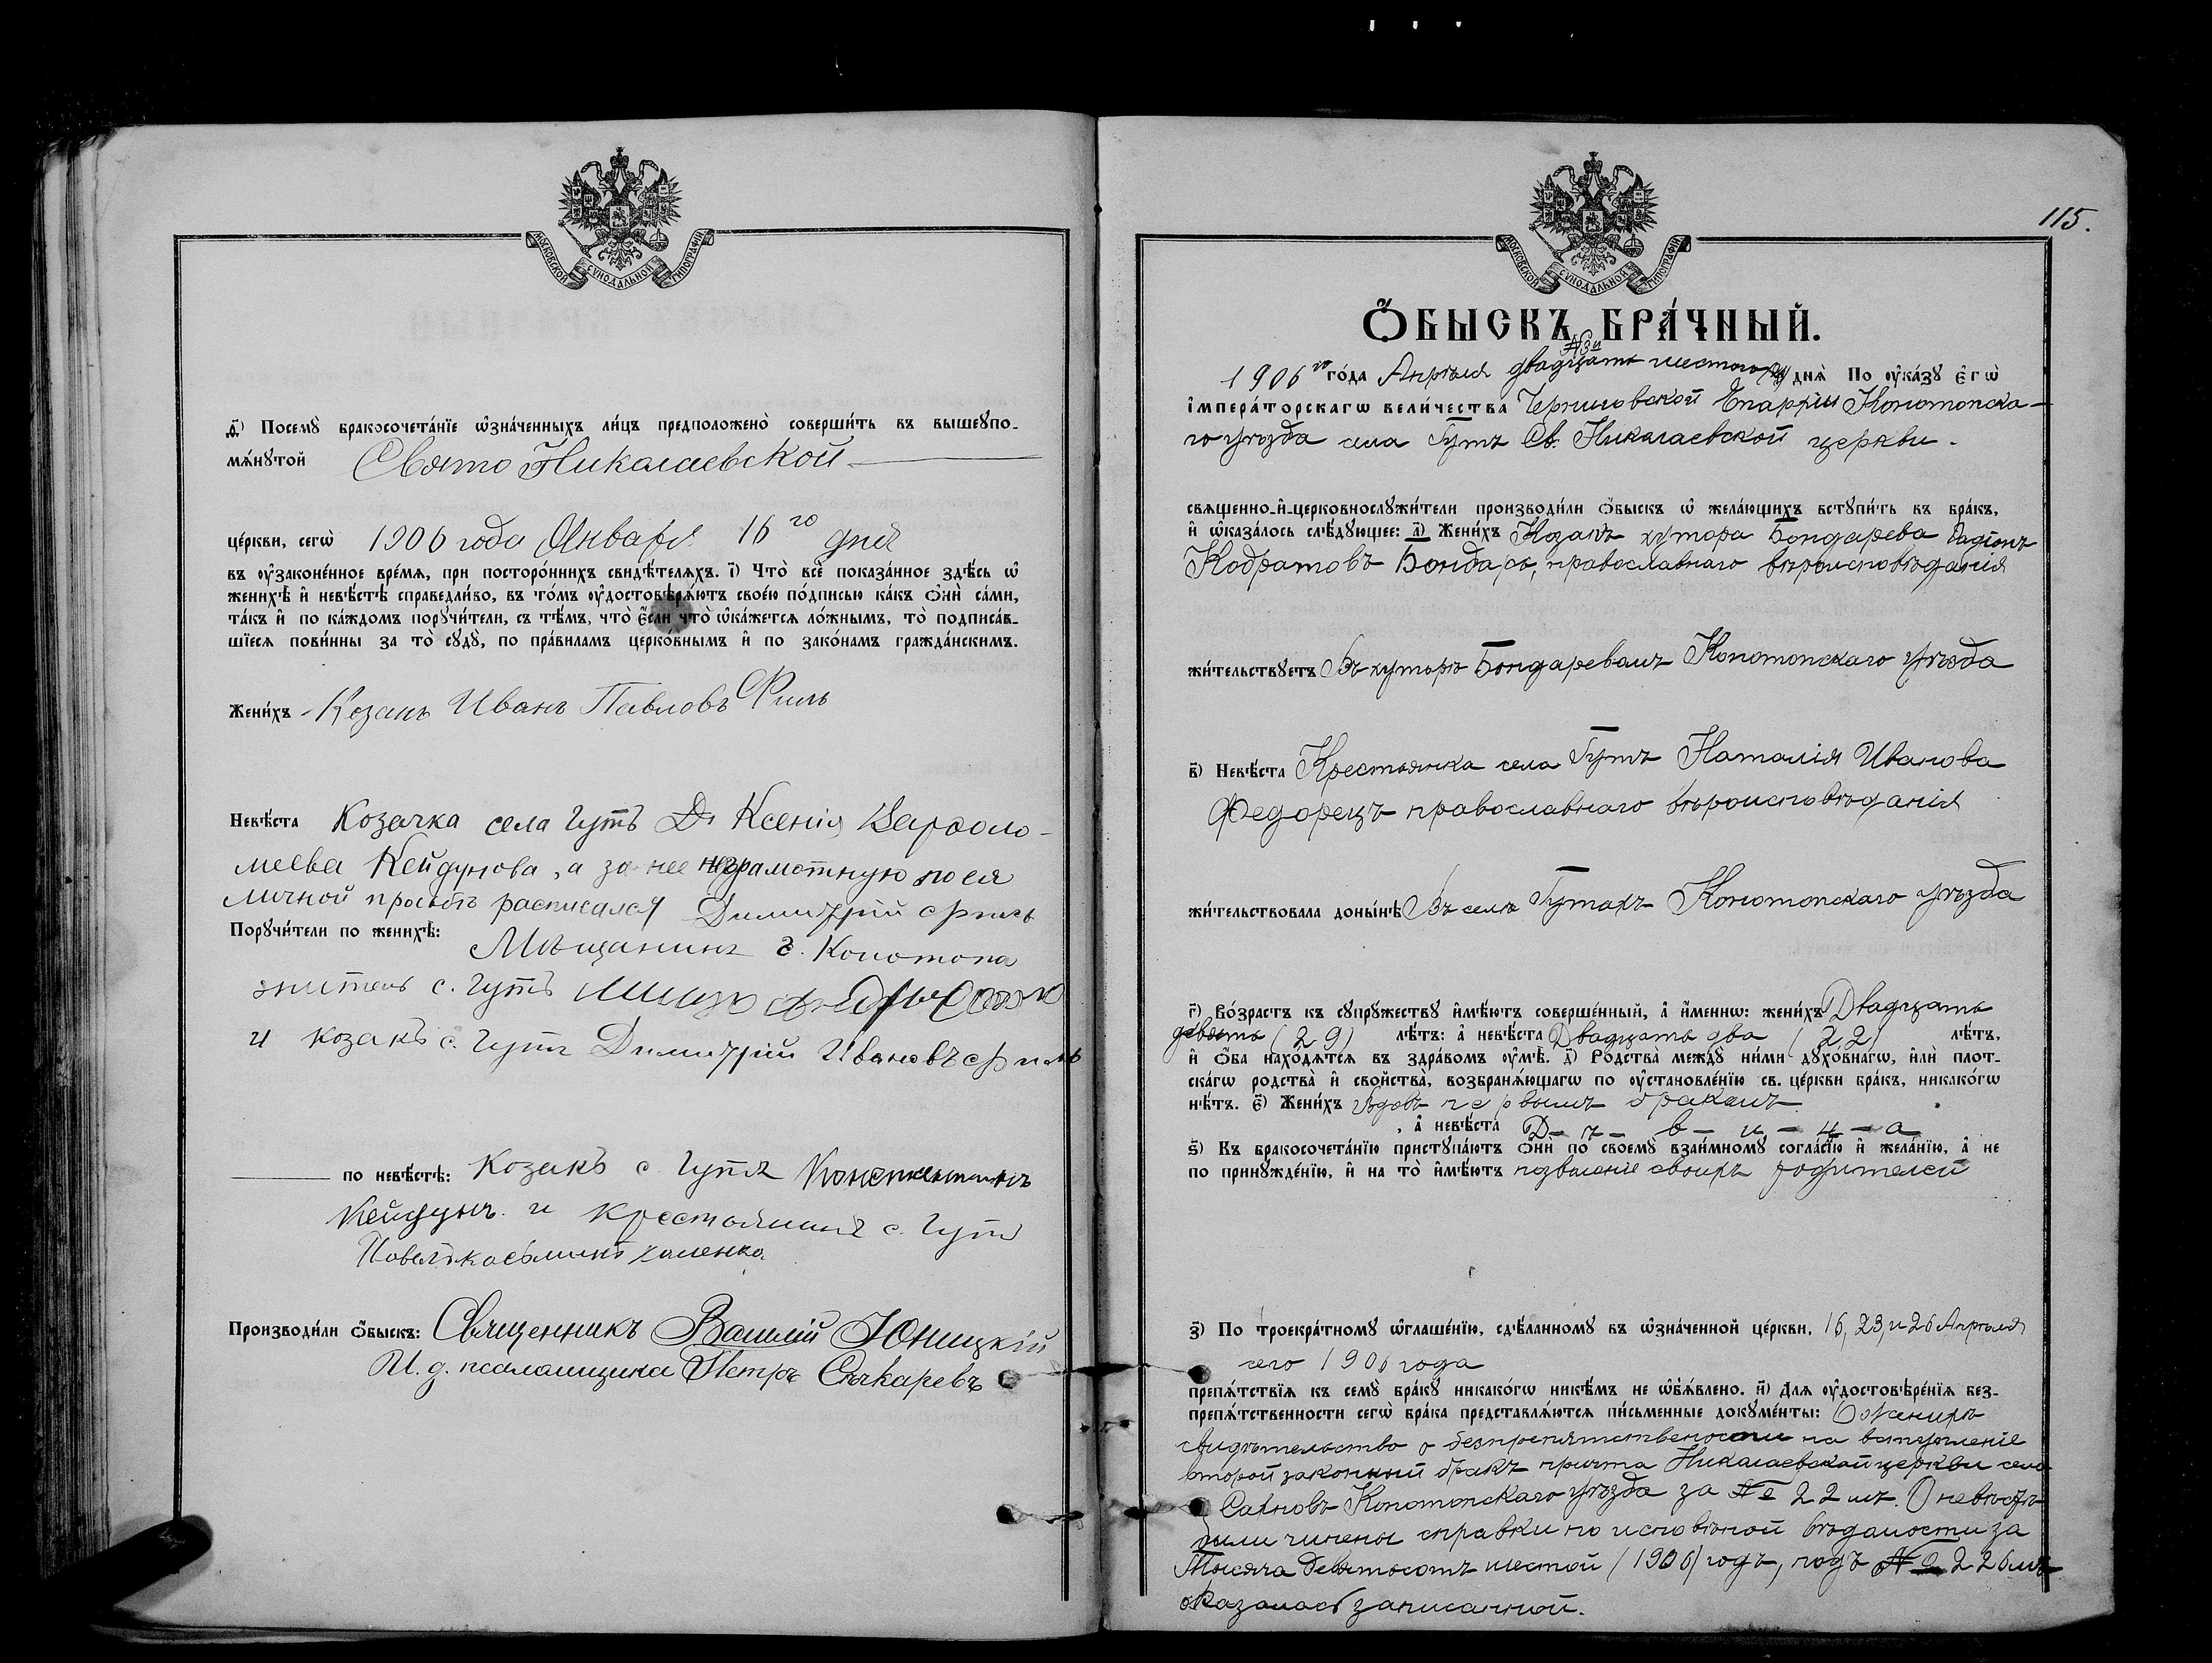 МОСКОВСКОЙ СѴНОДАЛЬНОЙ ТИПОГРАФІИ
д҃і) Посемꙋ̀ бракосочета́нїе ѡ҆зна́ченныхъ ли́цъ предположено̀ соверши́ть въ вышеꙋпо-
мѧ́нꙋтой Свято Николаевской
це́ркви, сегѡ̀ 1906 года Января 16го дня
въ ᲂу҆зако́ненное вре́мѧ, при посторо́ннихъ свидѣ́телѧхъ. і҃) Что̀ всѐ пока́занное здѣ́сь ѡ҆
женихѣ̀ и҆ невѣ́стѣ справедли́во, въ то́мъ ᲂу҆достовѣрѧ́ютъ свое́ю по́дписью ка́къ Ѻ҆нѝ са́ми,
та́къ и҆ по ка́ждомъ порꙋчи́тели, съ тѣ́мъ, что̀ є҆́сли что̀ ѡ҆ка́жетсѧ ло́жнымъ, то̀ подписа́в-
шїесѧ пови́нны за то̀ сꙋдꙋ̀, по пра́виламъ церко́внымъ и҆ по зако́намъ гражда́нскимъ.
Жени́хъ Козакъ Иванъ Павловъ Филь
Невѣ́ста Козачка села Гутъ Ксенія Варѳоло-
меева Кейдунова, а за нее неграмотную по ея
личной просьбѣ расписался Димитрій Филь
Порꙋчи́тели по женихѣ̀: Мѣщанинъ г. Конотопа
житель с. Гутъ
и козакъ с. Гутъ Димитрій Ивановъ Филь
по невѣ́стѣ: Козакъ с. Гутъ Константинъ
Кейдунъ и крестьянинъ с. Гутъ
Производи́ли Ѻ҆́быскъ: Священникъ Василій Юницкій
И. д. псаломщика Петръ Сѣчкаревъ
115.
МОСКОВСКОЙ СѴНОДАЛЬНОЙ ТИПОГРАФІИ
Ѻ҆́БЫСКЪ БРА́ЧНЫЙ.
1906го го́да Апрѣля двадцать шестого днѧ̀ По ᲂу҆ка́зꙋ є҆гѡ̀
і҆мпера́торскагѡ вели́чества Черниговской Епархіи Конотопска-
го уѣзда села Гутъ Св. Николаевской церкви.
свѧщенно-и҆-церковнослꙋжи́тели производи́ли Ѻ҆́быскъ ѡ҆ жела́ющихъ встꙋпи́ть въ бра́къ,
и҆ ѡ҆каза́лось слѣ́дꙋющее: а҃) Жени́хъ Козакъ хутора Бондарева Радіонъ
Кодратовъ Бондарь, православнаго вѣроисповѣданія
жи́тельствꙋетъ Въ хуторѣ Бондаревомъ Конотопскаго уѣзда
в҃) Невѣ́ста Крестьянка села Гутъ Наталія Иванова
Федорецъ православнаго вѣроисповѣданія
жи́тельствовала доны́нѣ Въ селѣ Гутахъ Конотопскаго уѣзда
г҃) Во́зрастъ къ сꙋпрꙋ́жествꙋ и҆мѣ́ютъ соверше́нный, а҆ и҆́меннѡ: жени́хъ Двадцать
девять (29) лѣ́тъ: а҆ невѣ́ста Двадцать два (22) лѣ́тъ,
и҆ Ѻ҆́ба нахо́дѧтсѧ въ здра́вомъ ᲂу҆мѣ̀. д҃) Родства̀ междꙋ̀ ни́ми дꙋхо́внагѡ, и҆лѝ плот-
ска́гѡ родства̀ и҆ сво́йства̀, возбранѧ́ющагѡ по ᲂу҆становле́нїю св. це́ркви бра́къ, никако́гѡ
нѣ́тъ. є҃) Жени́хъ вдовъ первымъ бракомъ
, а҆ невѣ́ста Д-ѣ-в-и-ц-а
ѕ҃) Къ бракосочета́нїю пристꙋпа́ютъ Ѻ҆нѝ по своемꙋ̀ взаи́мномꙋ согла́сїю и҆ жела́нїю, а҆ не
по принꙋжде́нїю, и҆ на то̀ и҆мѣ́ютъ позволеніе своихъ родителей
з҃) По троекра́тномꙋ ѡ҆глаше́нїю, сдѣ́ланномꙋ въ ѡ҆зна́ченной це́ркви, 16, 23, и 26 Апрѣля
сего 1906 года
препѧ́тствїѧ къ семꙋ̀ бра́кꙋ никако́гѡ никѣ́мъ не ѡ҆б̾ѧ́влено. и҃) Длѧ ᲂу҆достовѣре́нїѧ без-
препѧ́тственности сегѡ̀ бра́ка представлѧ́ютсѧ пи́сьменные докꙋме́нты: О женихѣ
свидѣтельство о безпрепятственности на вступленіе
второй законный бракъ причта Николаевской церкви села
Конотопскаго уѣзда за № 22мъ. О невѣстѣ
были чинены справки по исповѣдной вѣдомости за
Тысяча девятьсотъ шестой (1906) годъ, подъ № 226мъ
оказалась записанной.